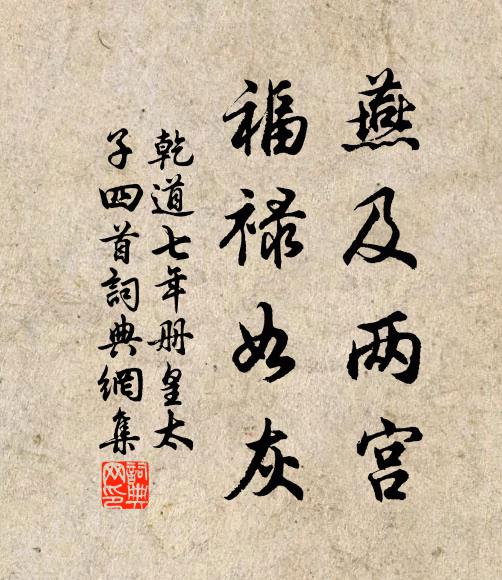 燕及两宫
福禄如灰
乾道七年册皇太
子四首詞典網集
詞典
网印